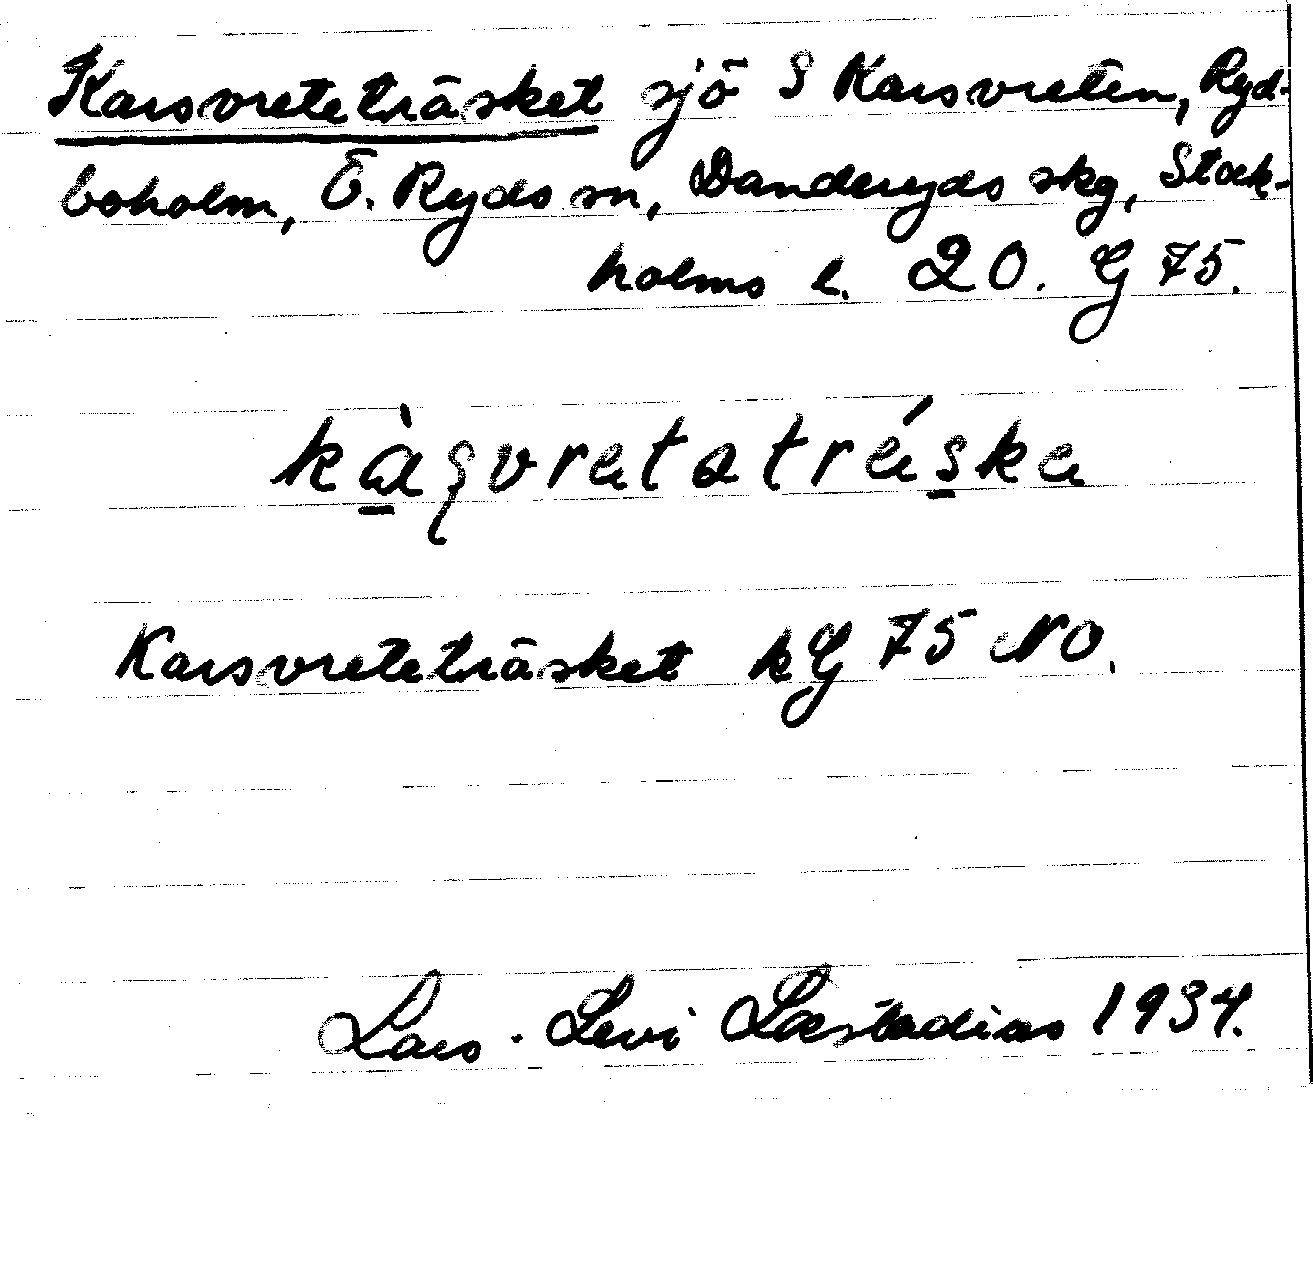 Karsvreteträsket sjö S Karsvreten, Ryd-
boholm, Ö. Ryds sn, Danderyds skg, Stock-
holms l. 20. G 75.
kàṣvretatréska
Karsvreteträsket kG 75 NO.
Lars-Levi Læstadius 1934.